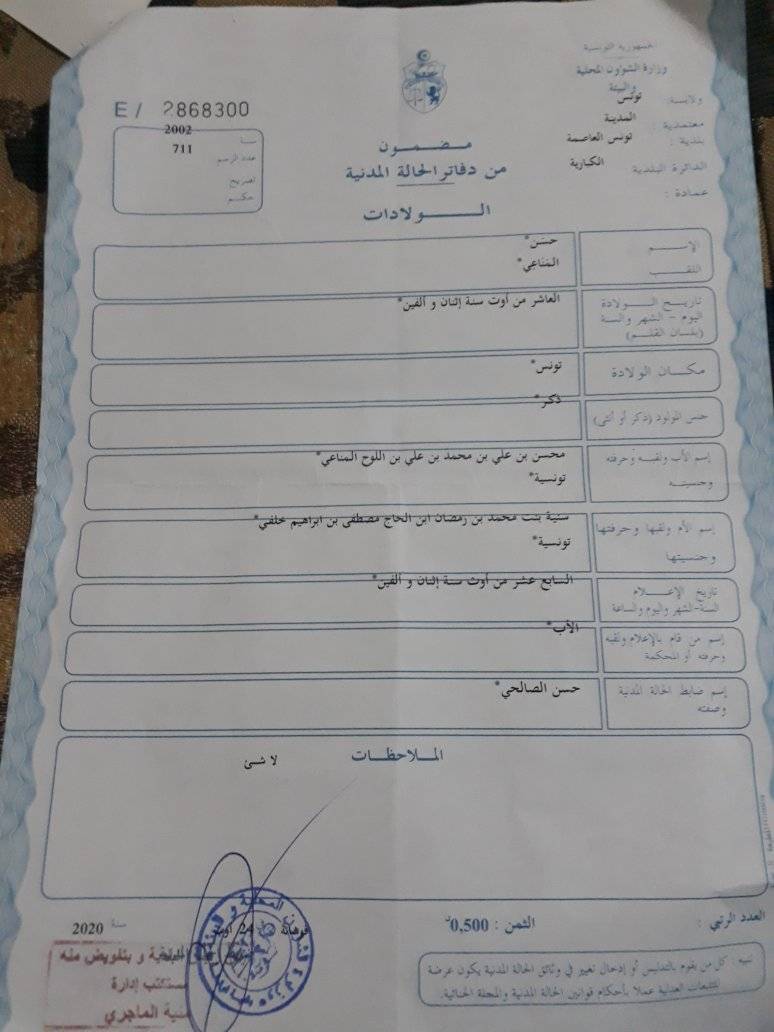 جمهورية التونسية
وزارة الشؤون المحلية
والبيئة
ولاية: تونس
معتمدية : المدينة
بلدية : تونس العاصمة
الدائرة البلدية الكبارية
عمادة :
E / 2868300
سنة 2002
عدد الرسم 711
تصريح
حكم
مضمون
من دفاتر الحالة المدنية
الولادات
الإسم حسن*
اللقب المناعي*
تاريخ الولادة العاشر من أوت سنة إثنان و ألفين*
اليوم - الشهر والسنة
(بلسان القلم)
مكان الولادة تونس*
جنس المولود (ذكر أو أنثى) ذكر*
إسم الأب ولقبه وحرفته محسن بن علي بن محمد بن علي بن اللوح المناعي*
وجنسيته تونسية*
إسم الأم ولقبها وحرفتها سنية بنت محمد بن رمضان ابن الحاج مصطفى بن ابراهيم خلفي*
وجنسيتها تونسية*
تاريخ الإعلام السابع عشر من أوت سنة إثنان و ألفين*
السنة-الشهر واليوم والساعة
إسم من قام بالإعلام ولقبه الأب*
وحرفته أو المحكمة
إسم ضابط الحالة المدنية حسن الصالحي*
وصفته
الملاحظات
لا شئ
العدد الرتبي :
الثمن : 0,500
24 أوت
سنة 2020
و بتفويض منه
مكتب إدارة
الماجري
تنبيه : كل من يقوم بالتدليس أو إدخال تغيير في وثائق الحالة المدنية يكون عرضة
للتتبعات العدلية عملا بأحكام قوانين الحالة المدنية والمجلة الجنائية.